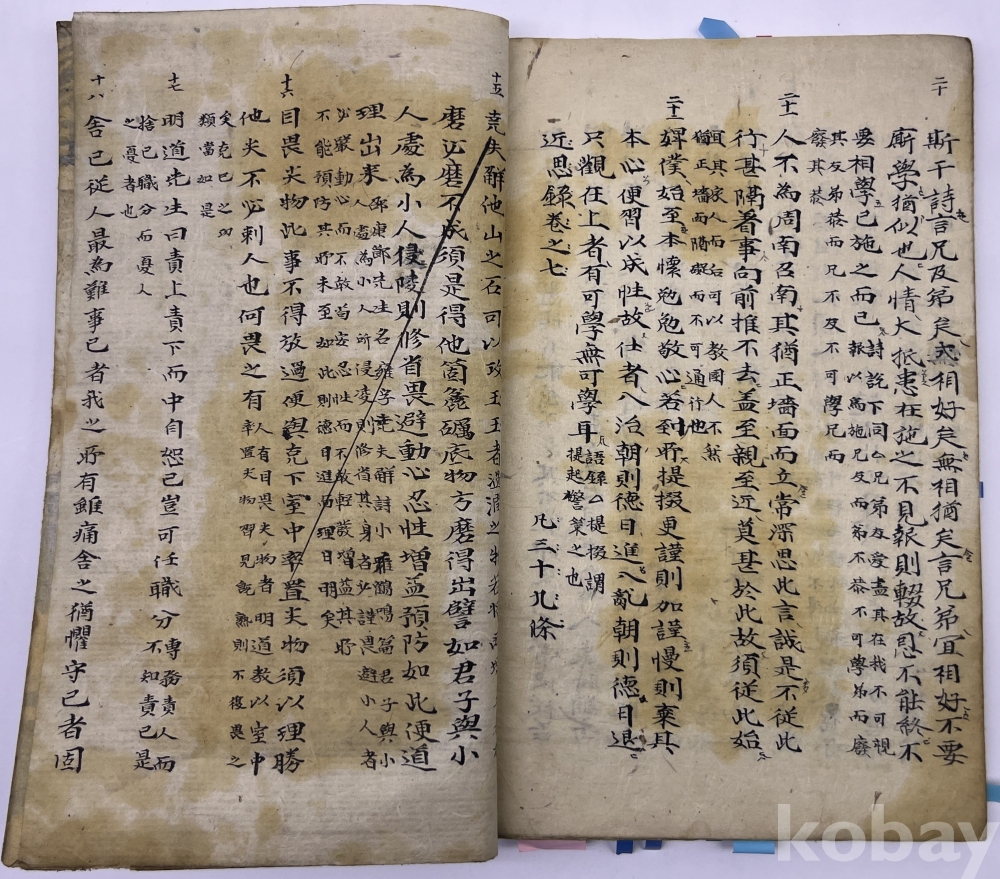 二十
斯干詩言兄及弟矣式相好矣無相猶矣言兄弟宜相好不要
廝學猶似也人情大抵患在施之不見報則輟故恩不能終不
要相學已施之而已
詩說下同○兄弟友愛盡其在我不可視
報以為施兄友而弟不恭不可學弟而廢
其友弟恭而兄不友不可學兄而
廢其恭
二十一
人不為周南召南其猶正墻面而立常深思此言誠是不從此
行甚隔着事向前推不去盖至親至近莫甚於此故須從此始
其家人而后可以教國人不然
猶正墻面而隔礙而不可通行他
二十二
婢僕始至本懷勉勉敬心若到所提掇更謹則加謹慢則棄其
本心便習以成性故仕者入治朝則德日進入亂朝則德日退
只觀在上者有可學無可學耳
語錄○提掇謂
提起警策之也
近思錄卷之七
凡三十九條
十五
堯夫解他山之石可以攻玉玉者溫潤之物若將
磨必磨不成須是得他箇麁礪底物方磨得出譬如君子與小
人處為小人侵陵則修省畏避動心忍性增益預防如此便道
理出來
邵康節先生名雍字堯夫解詩小雅鶴鳴篇君子與小
人處為小人所侵凌則修省其身者必謹畏避小人者
必嚴動心而不敢苟安忍性而不敢輕發增益其所
不能預防其所未至如此則德日進而理日明矣
十六
目畏尖物此事不得放過便與克下室中率置尖物須以理勝
他尖不必刺人也何畏之有
人有目畏尖物者明道教以室中
率置尖物習見既熟則不復畏之
矣克己之功
類當如是
十七
明道先生曰責上責下而中自恕己豈可任職分
專務責人而
不知責己是
捨己職分而憂人
之憂者也
十八
舍己從人最為難事己者我之所有雖痛舍之猶懼守己者固
kobay